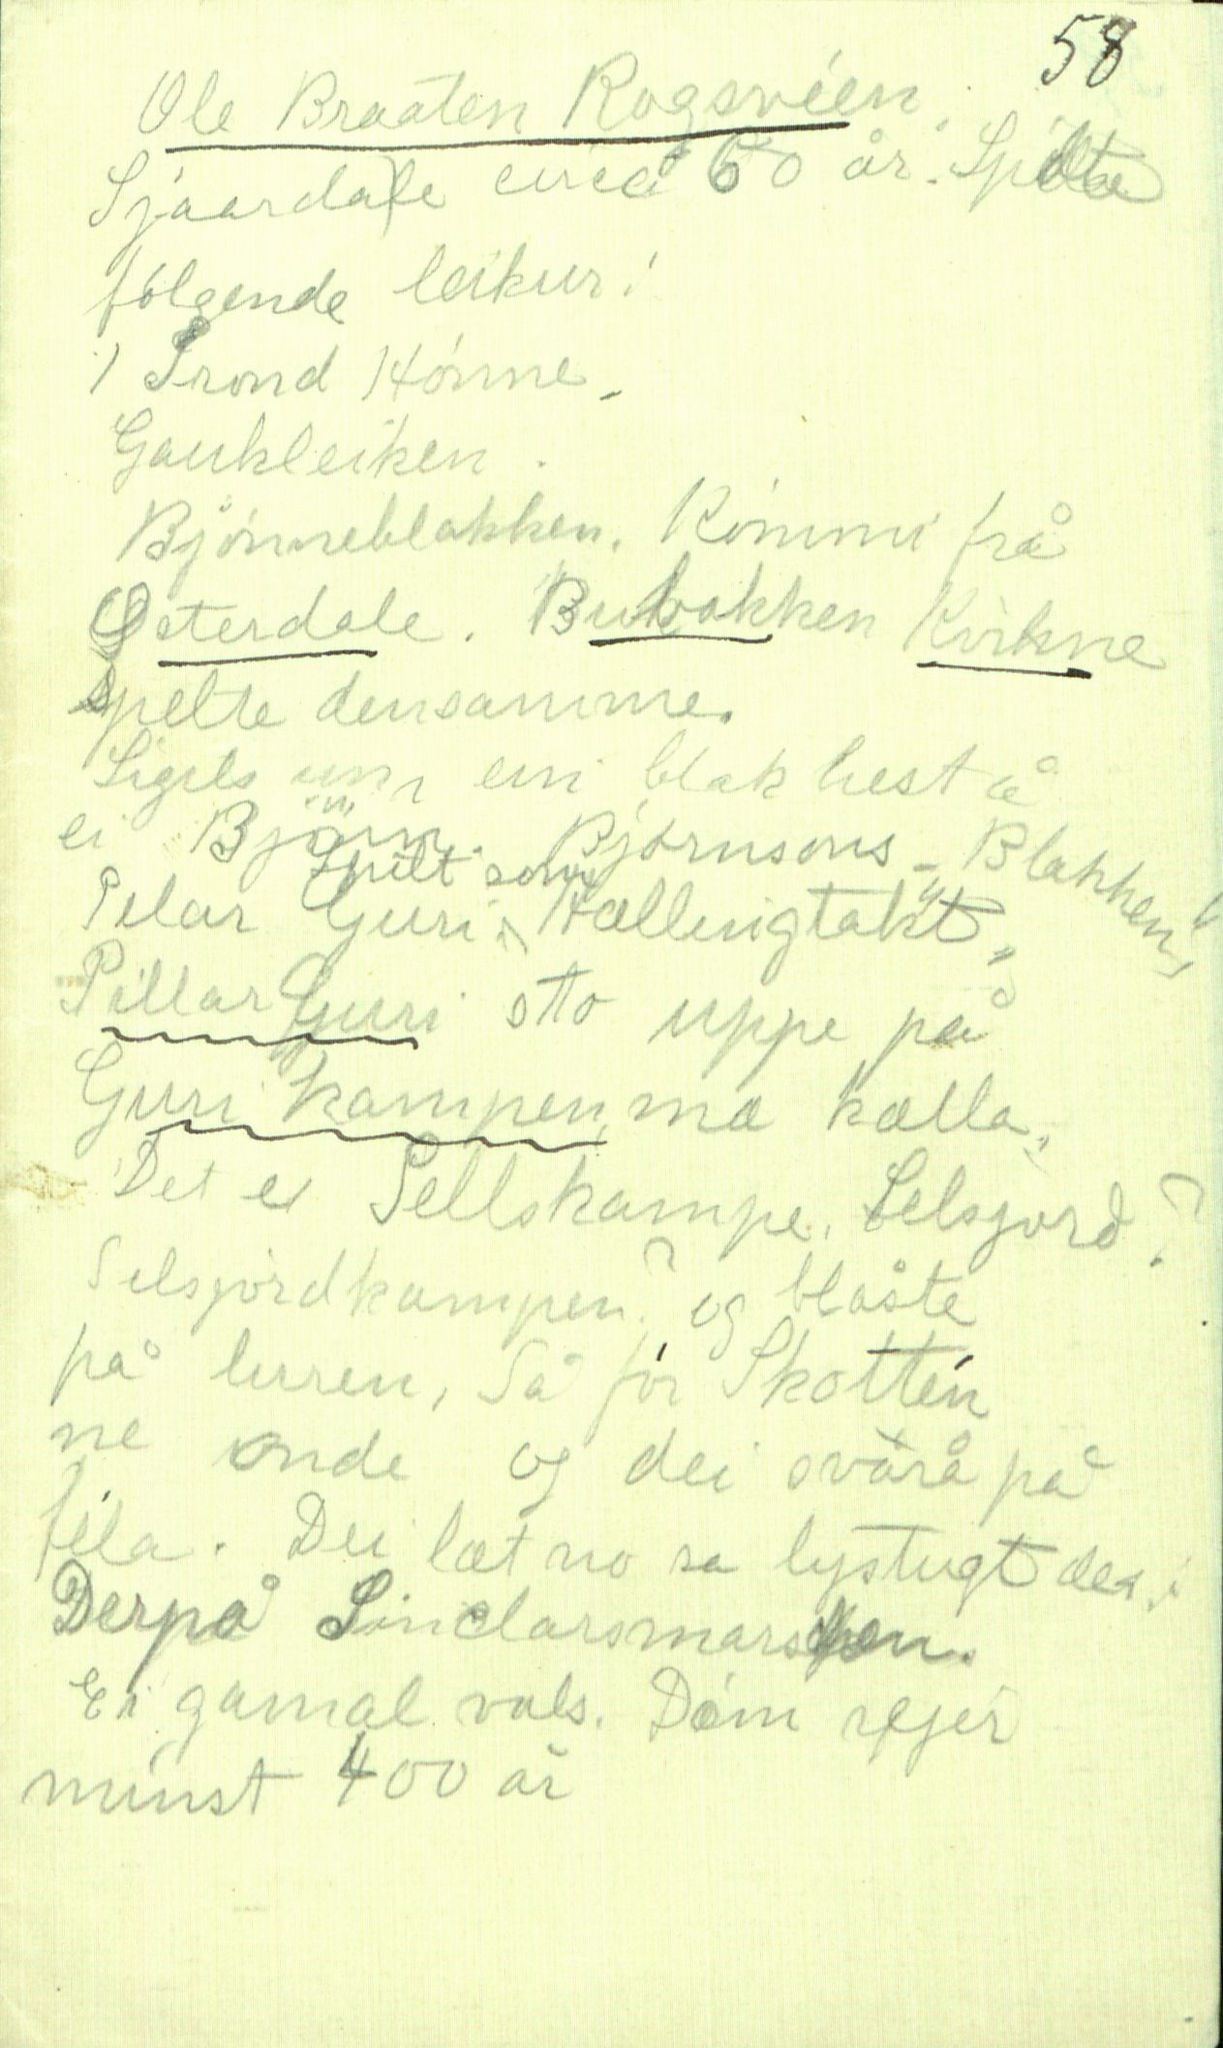 58
Ole Braaten Rogsveen.
Sjaardale circa 60 år. Spilte
følgende leikur:
1 Trond Hónne.
Gaukleiken.
Bjónneblakken. Kómmi frå
Østerdale. Bubakken Kvikne
spelte densamme.
Sigels um ein blak hest å
ei Bjönn. Bjørnsons "Blakken"
Spilt som
Pelar Guri, Hallingtakt.
Pillar Guri sto uppe på
Guri kampen, mæ kalla.
Det er Sellskampe. Selsjord?
Selsjordkampen? og blåste
på luren, Så fór Skottén
ne onde og dei svårå på
féla. Dei læt no sa lystugt der.
Derpå Sinclarsmarschen.
Ei gamal vals. Dóm sejer
minst 400 år